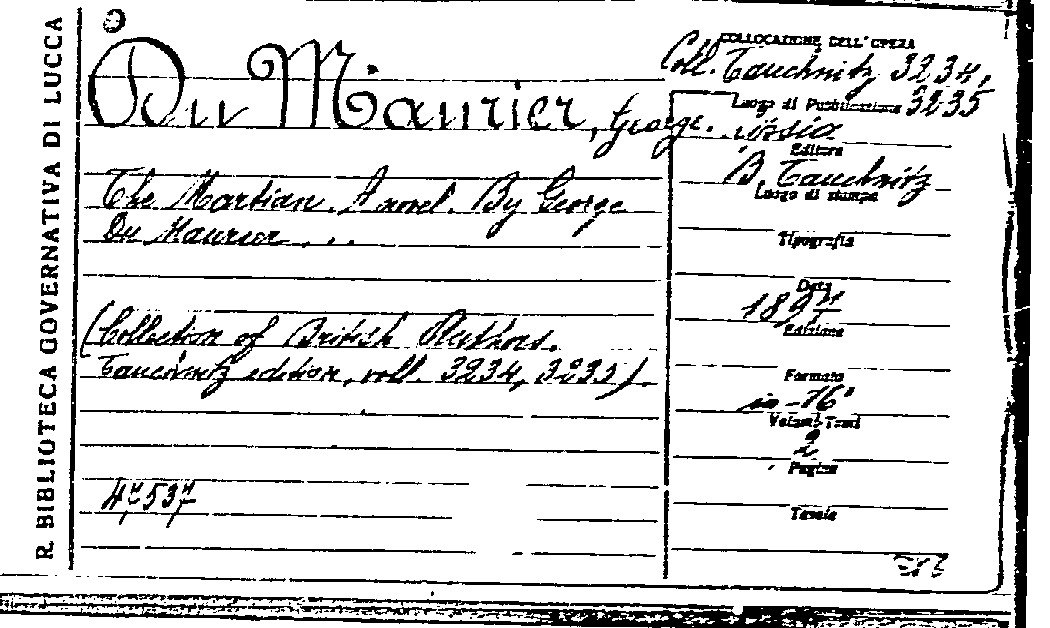 R. BIBLIOTECA GOVERNATIVA DI LUCCA
Du Maurier, George.
The Martian. A novel. By George
Du Maurier...
(Collection of British Authors.
Tauchnitz edition, voll. 3234, 3235).
47537
COLLOCAZIONE DELL'OPERA
Coll. Tauchnitz 3234,
3235
Luogo di Pubblicazione
Editore
B. Tauchnitz
Luogo di stampa
Tipografia
Data
1897
Edizione
Formato
in-16°
Volumi-Tomi
2
Pagine
Tavole